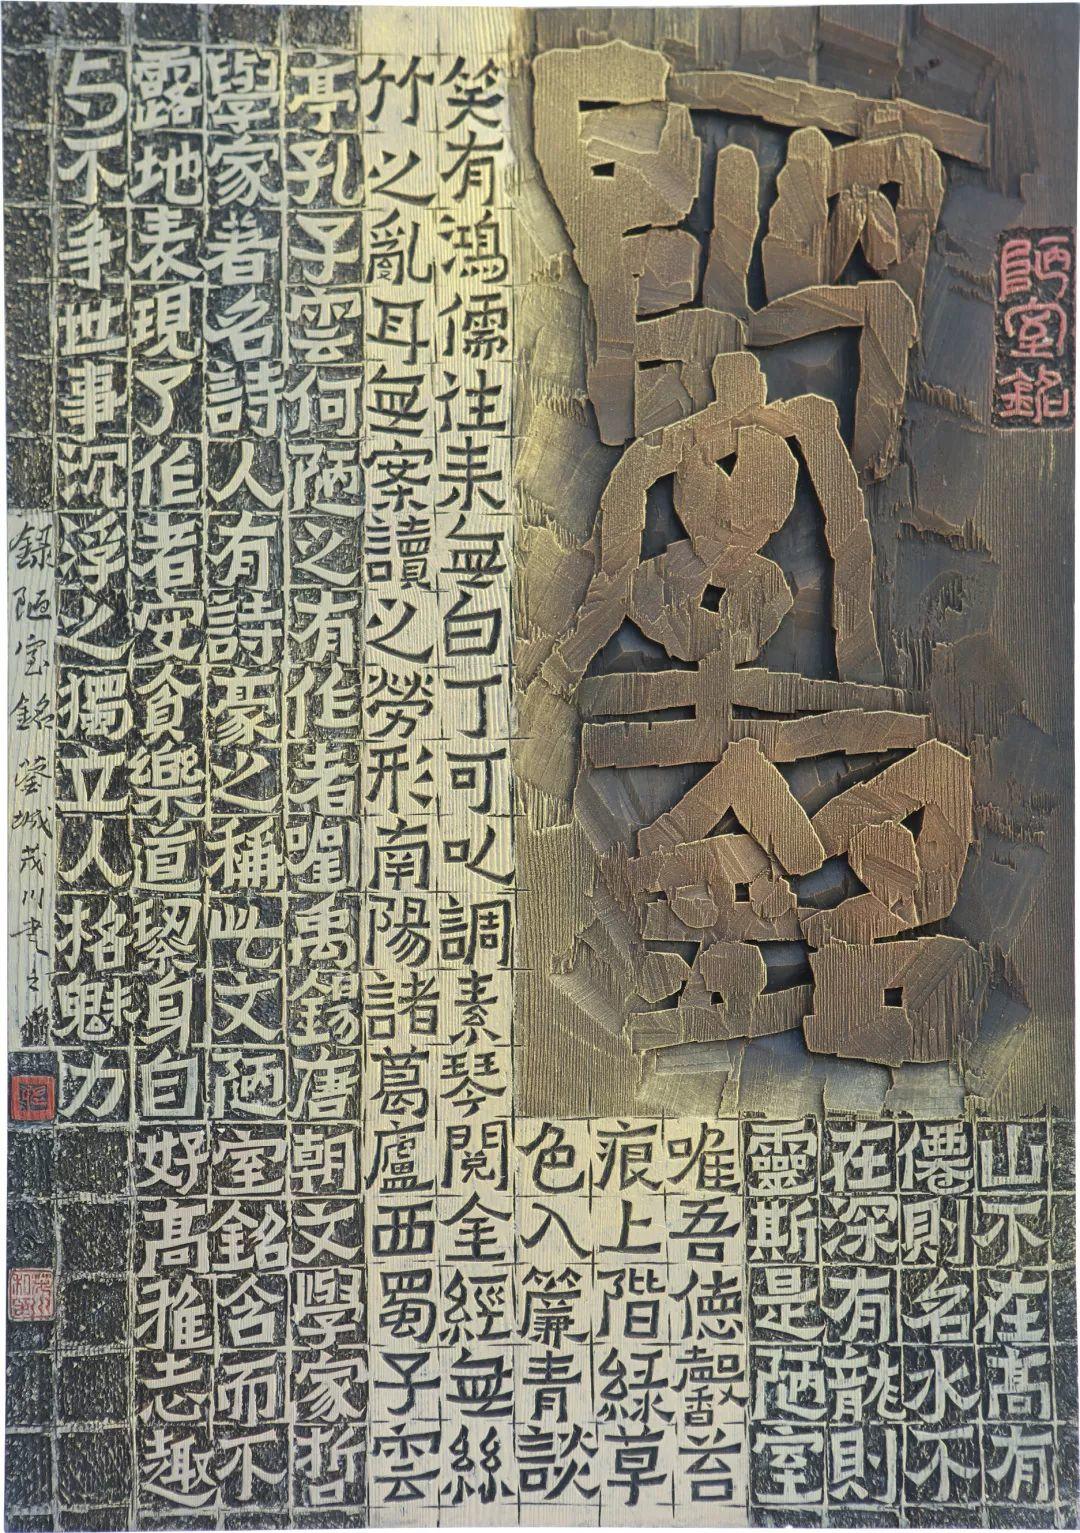 陋室銘
陋室銘
山不在高有
僊則名水不
在深有龍則
靈斯是陋室
唯吾德馨苔
痕上階綠草
色入簾青談
笑有鴻儒往来無白丁可以調素琴閱金經無絲
竹之亂耳無案讀之勞形南陽諸葛廬西蜀子雲
亭孔子雲何陋之有作者劉禹錫唐朝文學家哲
學家著名詩人有詩豪之稱此文陋室銘含而不
露地表現了作者安貧樂道身自好高雅志趣
与不爭世事沉浮之獨立人格魅力
録陋室銘城茂川書之